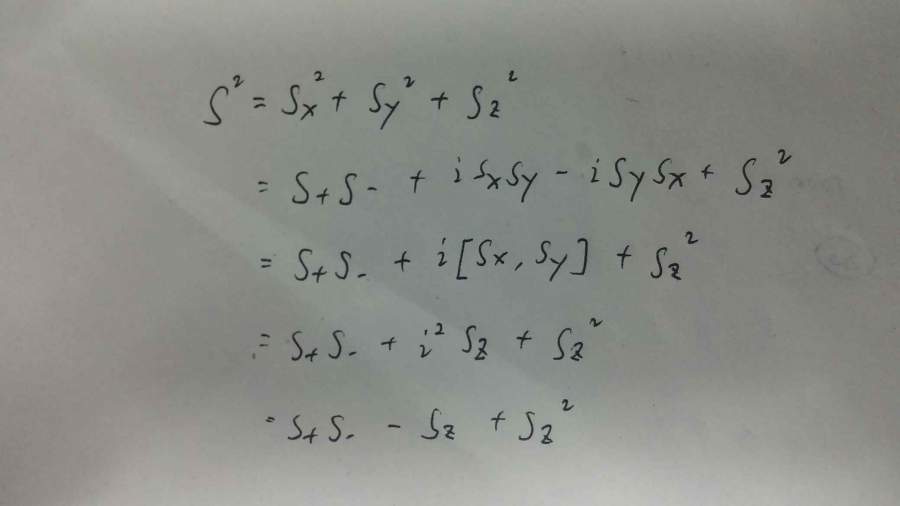 S² = Sx² + Sy² + Sz²
= S+S- + iSxSy - iSySx + Sz²
= S+S- + i[Sx, Sy] + Sz²
= S+S- + i²Sz + Sz²
= S+S- - Sz + Sz²